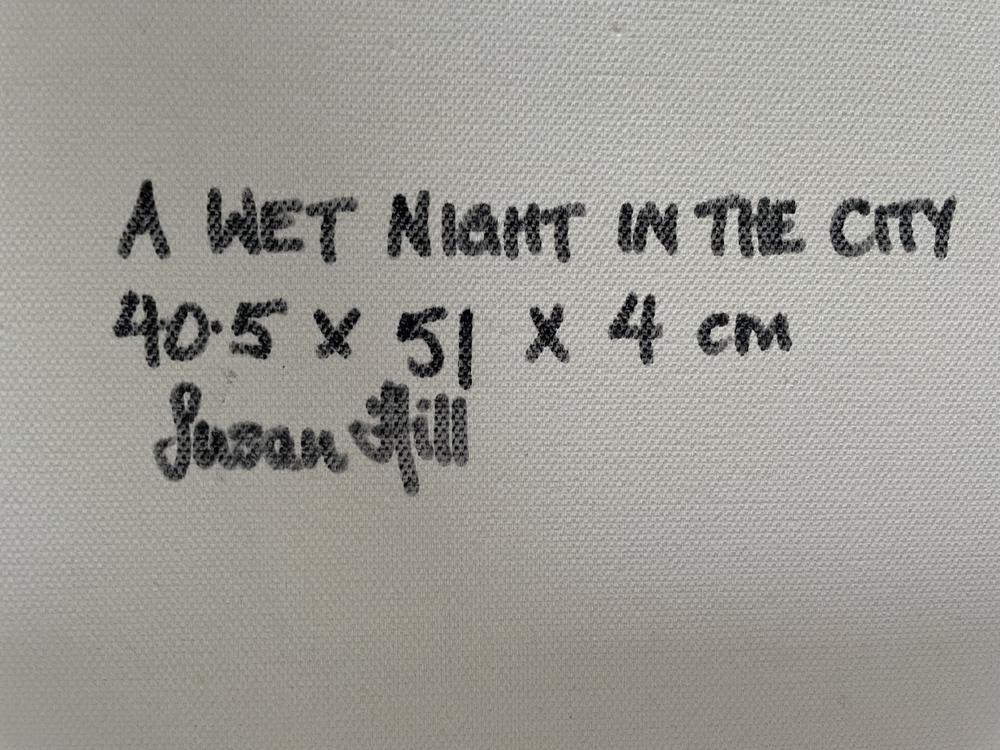 A WET NIGHT IN THE CITY
40.5 x 51 x 4 cm
Susan Hill